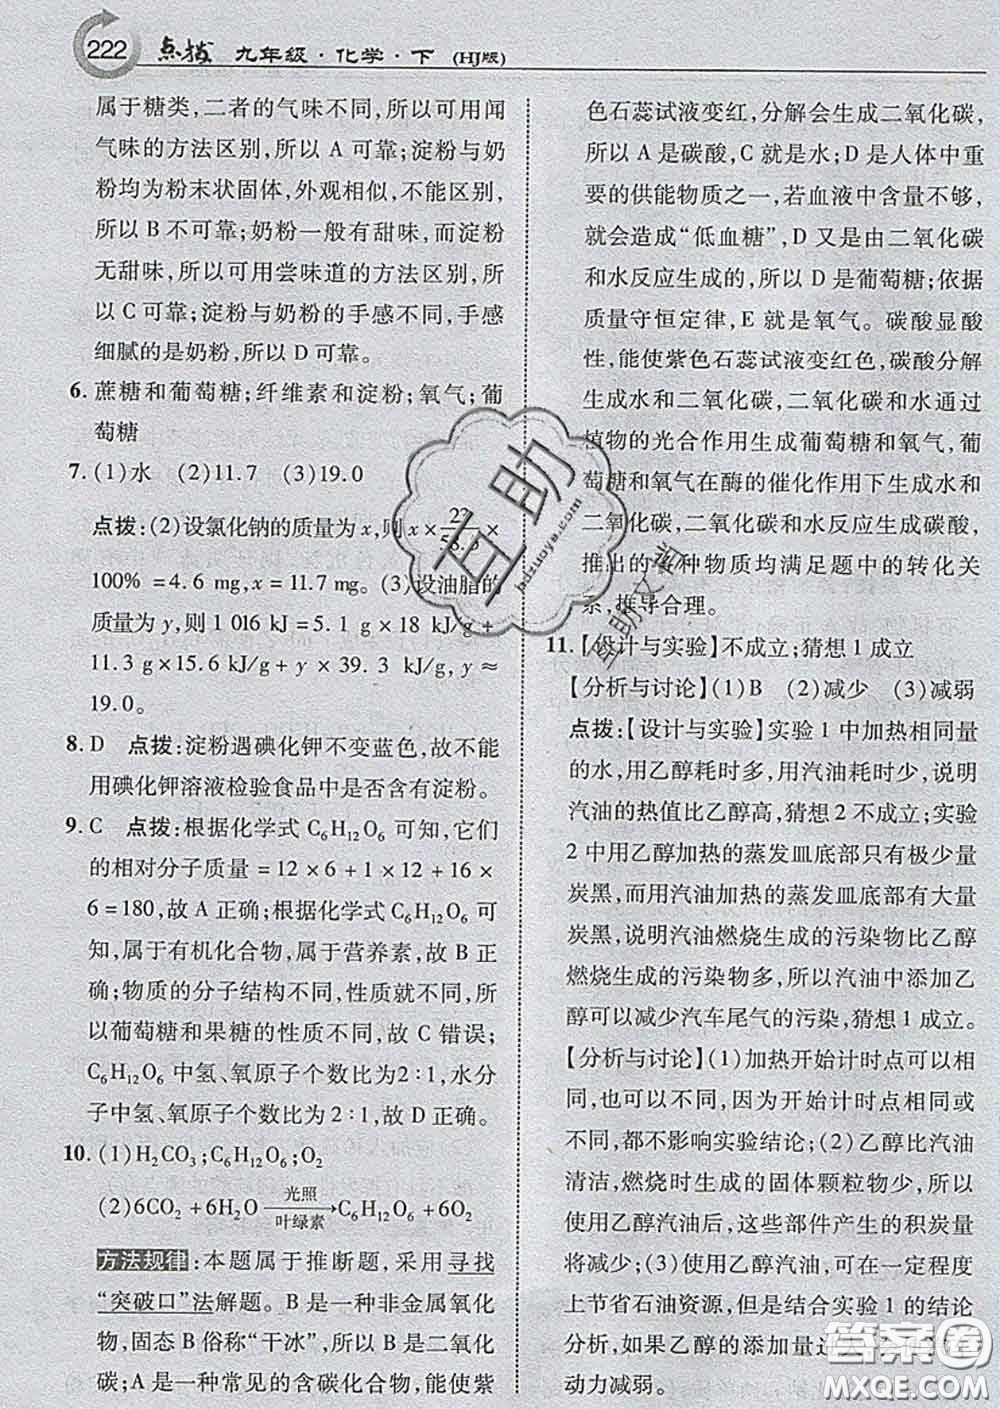 222 点拨 九年级·化学·下 (HJ版)
属于糖类,二者的气味不同,所以可用闻
气味的方法区别,所以 A 可靠;淀粉与奶
粉均为粉末状固体,外观相似,不能区别,
所以 B 不可靠;奶粉一般有甜味,而淀粉
无甜味,所以可用尝味道的方法区别,所
以 C 可靠;淀粉与奶粉的手感不同,手感
细腻的是奶粉,所以 D 可靠。
6. 蔗糖和葡萄糖;纤维素和淀粉;氧气;葡
萄糖
7. (1)水 (2)11.7 (3)19.0
点拨:(2)设氯化钠的质量为 x,则 x×23/58.5×
100%=4.6 mg,x=11.7 mg。(3)设油脂的
质量为 y,则 1 016 kJ=5.1 g×18 kJ/g+
11.3 g×15.6 kJ/g+y×39.3 kJ/g,y≈
19.0。
8. D 点拨:淀粉遇碘化钾不变蓝色,故不能
用碘化钾溶液检验食品中是否含有淀粉。
9. C 点拨:根据化学式 C₆H₁₂O₆ 可知,它们
的相对分子质量=12×6+1×12+16×
6=180,故 A 正确;根据化学式 C₆H₁₂O₆ 可
知,属于有机化合物,属于营养素,故 B 正
确;物质的分子结构不同,性质就不同,所
以葡萄糖和果糖的性质不同,故 C 错误;
C₆H₁₂O₆ 中氢、氧原子个数比为2∶1,水分
子中氢、氧原子个数比为 2∶1,故 D 正确。
10. (1)H₂CO₃;C₆H₁₂O₆;O₂
(2)6CO₂+6H₂O 光照/叶绿素→ C₆H₁₂O₆+6O₂
方法规律:本题属于推断题,采用寻找
“突破口”法解题。B 是一种非金属氧化
物,固态 B 俗称“干冰”,所以 B 是二氧化
碳;A 是一种常见的含碳化合物,能使紫
色石蕊试液变红,分解会生成二氧化碳,
所以 A 是碳酸,C 就是水;D 是人体中重
要的供能物质之一,若血液中含量不足,
就会造成“低血糖”,D 又是由二氧化碳
和水反应生成的,所以 D 是葡萄糖;依据
质量守恒定律,E 就是氧气。碳酸显酸
性,能使紫色石蕊试液变红色,碳酸分解
生成水和二氧化碳,二氧化碳和水通过
植物的光合作用生成葡萄糖和氧气,葡
萄糖和氧气在酶的催化作用下生成水和
二氧化碳,二氧化碳和水反应生成碳酸,
推出的各种物质均满足题中的转化关
系,推导合理。
11. 【设计与实验】不成立;猜想 1 成立
【分析与讨论】(1)B (2)减少 (3)减弱
点拨:【设计与实验】实验 1 中加热相同量
的水,用乙醇耗时多,用汽油耗时少,说明
汽油的热值比乙醇高,猜想 2 不成立;实验
2 中用乙醇加热的蒸发皿底部只有极少量
炭黑,而用汽油加热的蒸发皿底部有大量
炭黑,说明汽油燃烧生成的污染物比乙醇
燃烧生成的污染物多,所以汽油中添加乙
醇可以减少汽车尾气的污染,猜想 1 成立。
【分析与讨论】(1)加热开始计时点可以相
同,也可以不同,因为开始计时点相同或
不同,都不影响实验结论;(2)乙醇比汽油
清洁,燃烧时生成的固体颗粒物少,所以
使用乙醇汽油后,这些部件产生的积炭量
将减少;(3)使用乙醇汽油,可在一定程度
上节省石油资源,但是结合实验 1 的结论
分析,如果乙醇的添加量过大
动力减弱。
互助
hdzuoye.com
互助文肖
答案圈
MXQE.COM